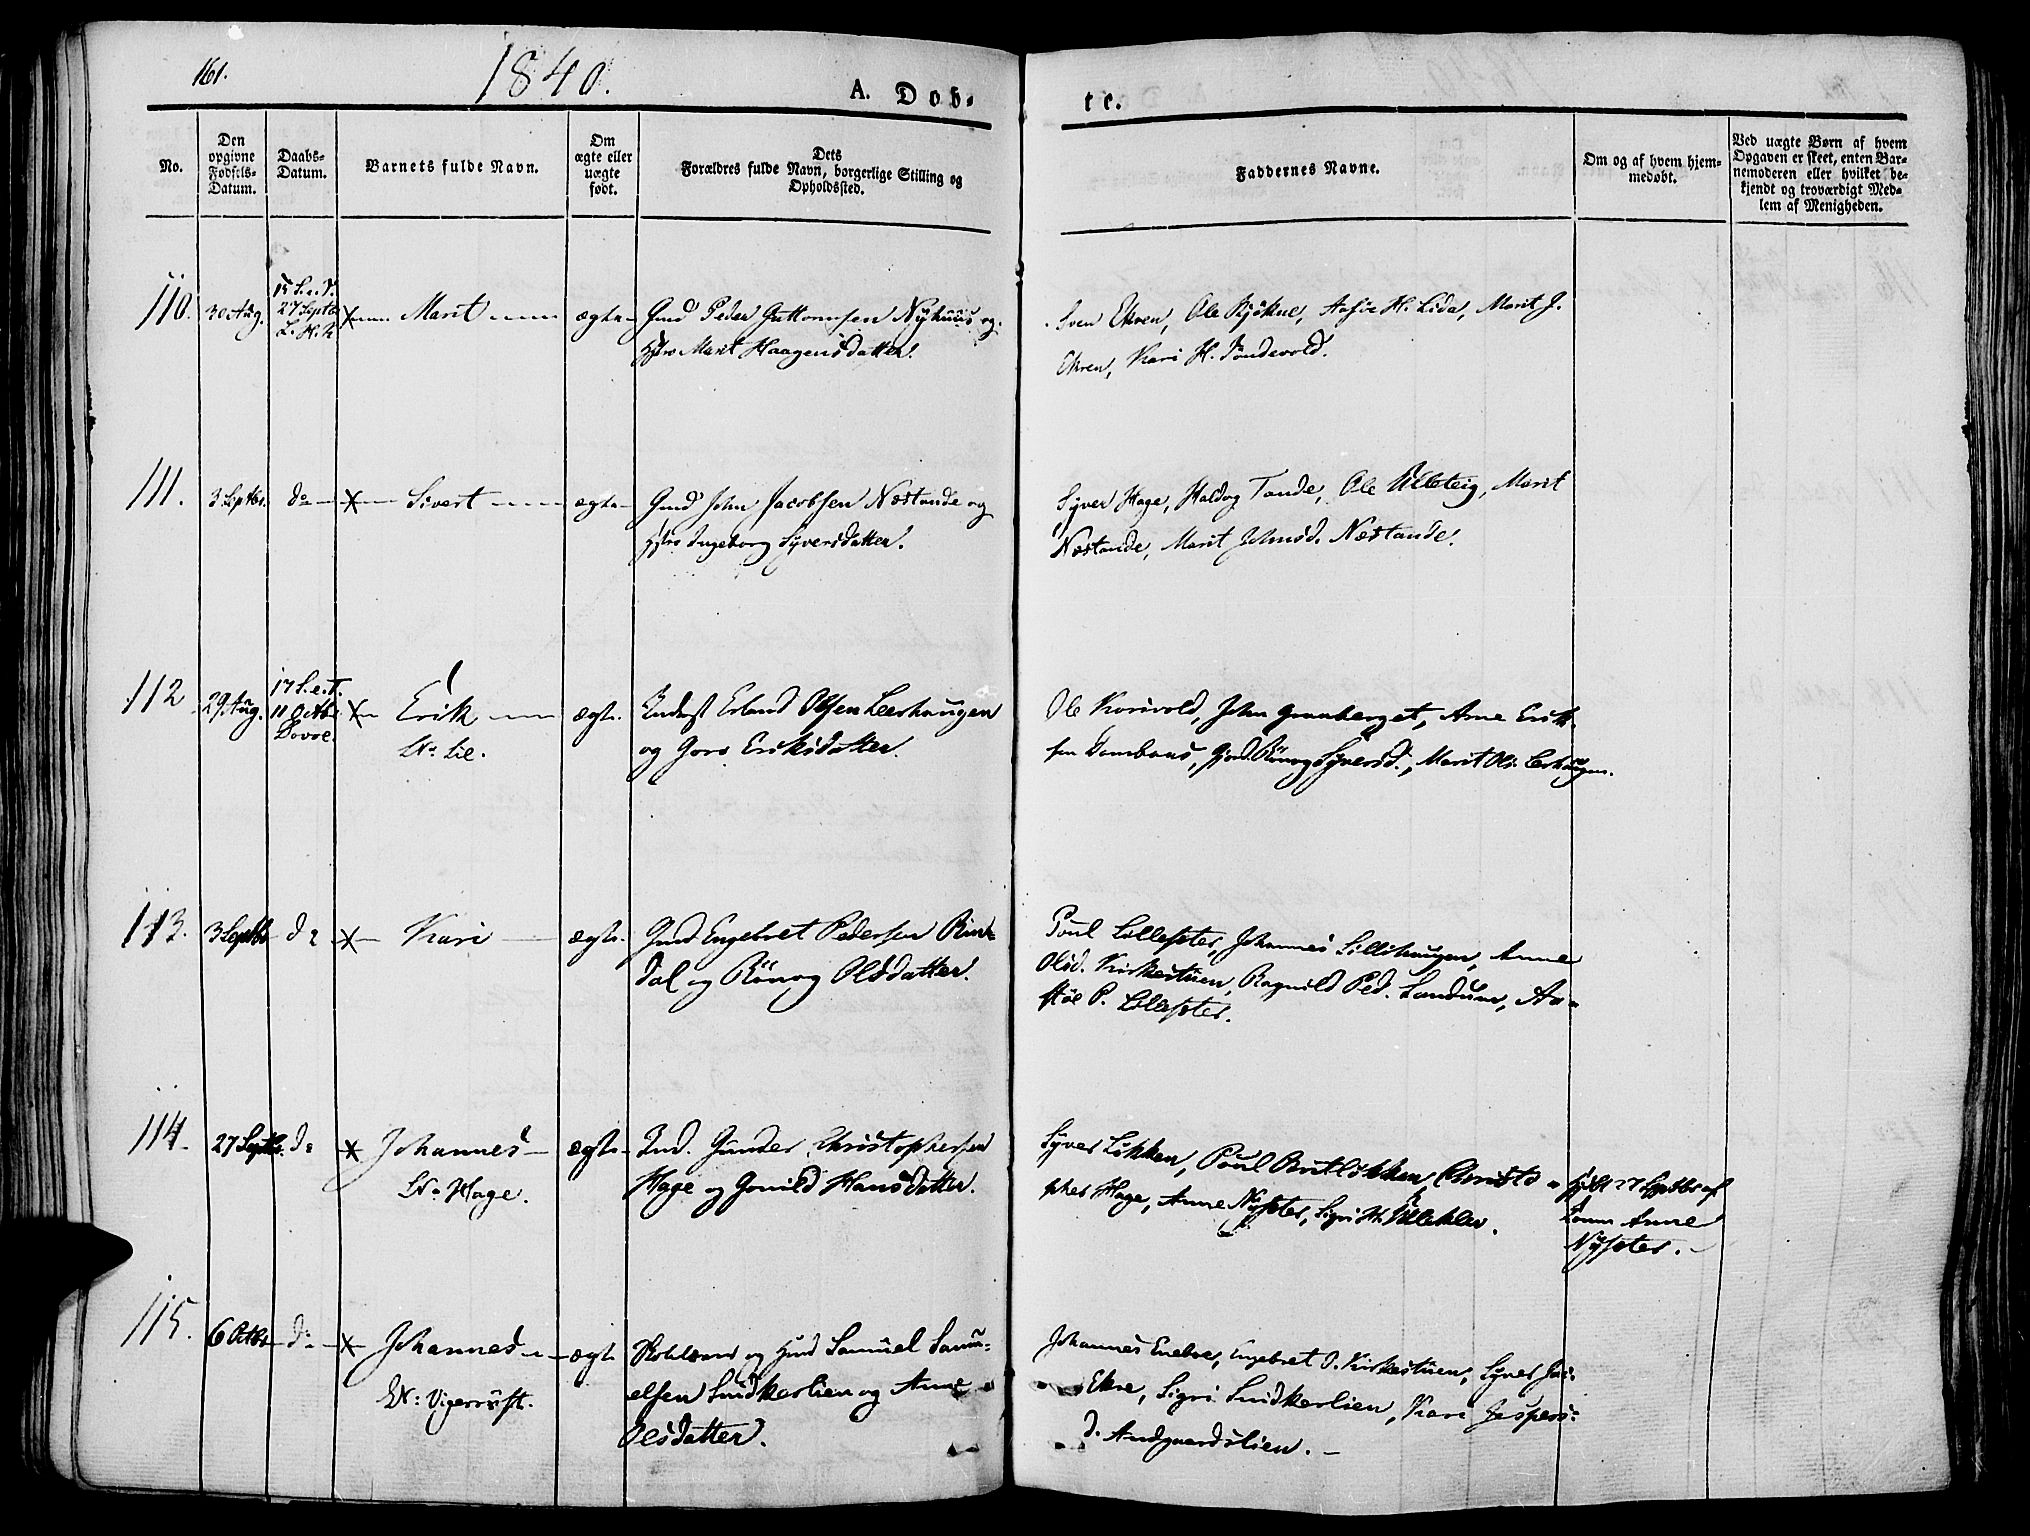 161.
1840.
A. Dob-
te.
No.
Den opgivne Fødsels-Datum.
Daabs-Datum.
Barnets fulde Navn.
Om ægte eller uægte født.
Dets Forældres fulde Navn, borgerlige Stilling og Opholdssted.
Faddernes Navne.
Om og af hvem hjem-medøbt.
Ved uægte Børn af hvem Opgaven er skeet, enten Bar-nemoderen eller hvilket be-kjendt og troværdigt Med-lem af Menigheden.
110. 30 Aug. 15 S. e. T. 27 Septbr Marit ægte
Gmd Peder Guttormsen Nyhuus og
Hstro Marit Haagensdatter.
Sven Ekren, Ole Bjökne, H. Lida, Marit J.
Ekren, Kari H. Töndevold.
111. 3 Septbr. do Sivert ægte
Gmd John Jacobsen Næstande og
Hstro Ingeborg Syversdatter.
Syver Hage, Haldog Tande, Ole Ulleteig, Marit
Næstande, Marit Johnsd. Næstande.
112 29. Aug. 17 S. e. T. 11 Octbr. Dovre. Erik ægte.
No Lie.
Inderst Erland Olsen Leerhaugen
og Goro Eriksdatter.
Ole Korsvold, John Granberget, Arne Erik-
sen Dombaas, Rönnog Syversd., Marit Ols. Lerhaugen.
113. 3 Septbr do Kari ægte.
Gmd Engebret Pedersen Rin-
dal og Rönnog Olsdatter.
Poul Lillesæter, Johannes Lillehaugen, Anne
Olsd. Kirkestuen, Ragnild Ped. Landum, Aa-
P. Lillesæter.
114. 27 Septbr. do Johannes ægte
No Hage.
Ind. Gunder Christophersen
Hage og Gonild Hansdatter.
Syver Lökken, Poul Brutlökken, Christo-
pher Hage, Anne Nysæter, Sigri H.
Hjdt 27 Septbr af
Anne
Nysæter.
115. 6 Octbr do Johannes ægte
No: Vigerust.
Skolelærer og Hmd Samuel Samu-
elsen Snidkerlien og Anne
Olsdatter.
Johannes Eneboe, Engebret O. Kirkestuen, Syver
Ekre, Sigri Snidkerlien, Kari Jespers-
d. Andgaardslien.